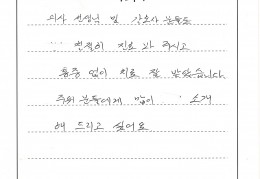 의사 선생님 및 간호사 분들도
친절히 진료 봐 주시고
통증 없이 치료 잘 받았습니다.
주위 분들에게 많이 소개
해 드리고 싶어요